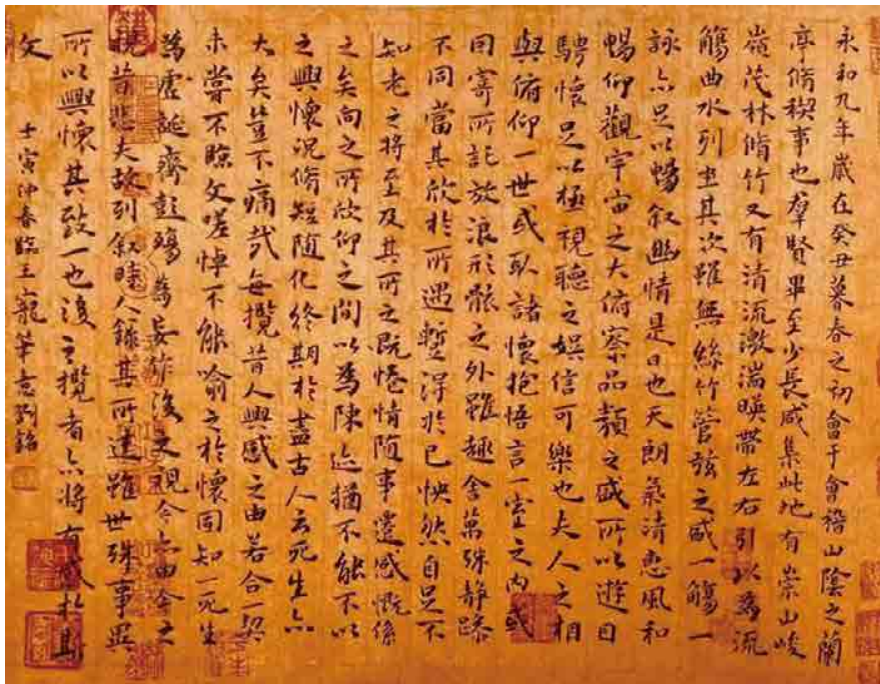 永和九年歲在癸丑暮春之初會于會稽山陰之蘭
亭脩稧事也羣賢畢至少長咸集此地有崇山峻
嶺茂林脩竹又有清流激湍暎帶左右引以為流
觴曲水列坐其次雖無絲竹管弦之盛一觴一
詠亦足以暢叙幽情是日也天朗氣清惠風和
暢仰觀宇宙之大俯察品類之盛所以遊目
騁懷足以極視聽之娛信可樂也夫人之相
與俯仰一世或取諸懷抱悟言一室之內或
因寄所託放浪形骸之外雖趣舍萬殊静躁
不同當其欣於所遇蹔得於己怏然自足不
知老之將至及其所之既惓情隨事遷感慨係
之矣向之所欣仰之間以為陳迹猶不能不以
之興懷況脩短隨化終期於盡古人云死生亦
大矣豈不痛哉每攬昔人興感之由若合一契
未嘗不臨文嗟悼不能喻之於懷固知一死生
為虛誕齊彭殤為妄作後之視今亦由今之
視昔悲夫故列叙時人錄其所述雖世殊事異
所以興懷其致一也後之攬者亦將有感於斯
文
壬寅仲春臨王寵筆意劉銘